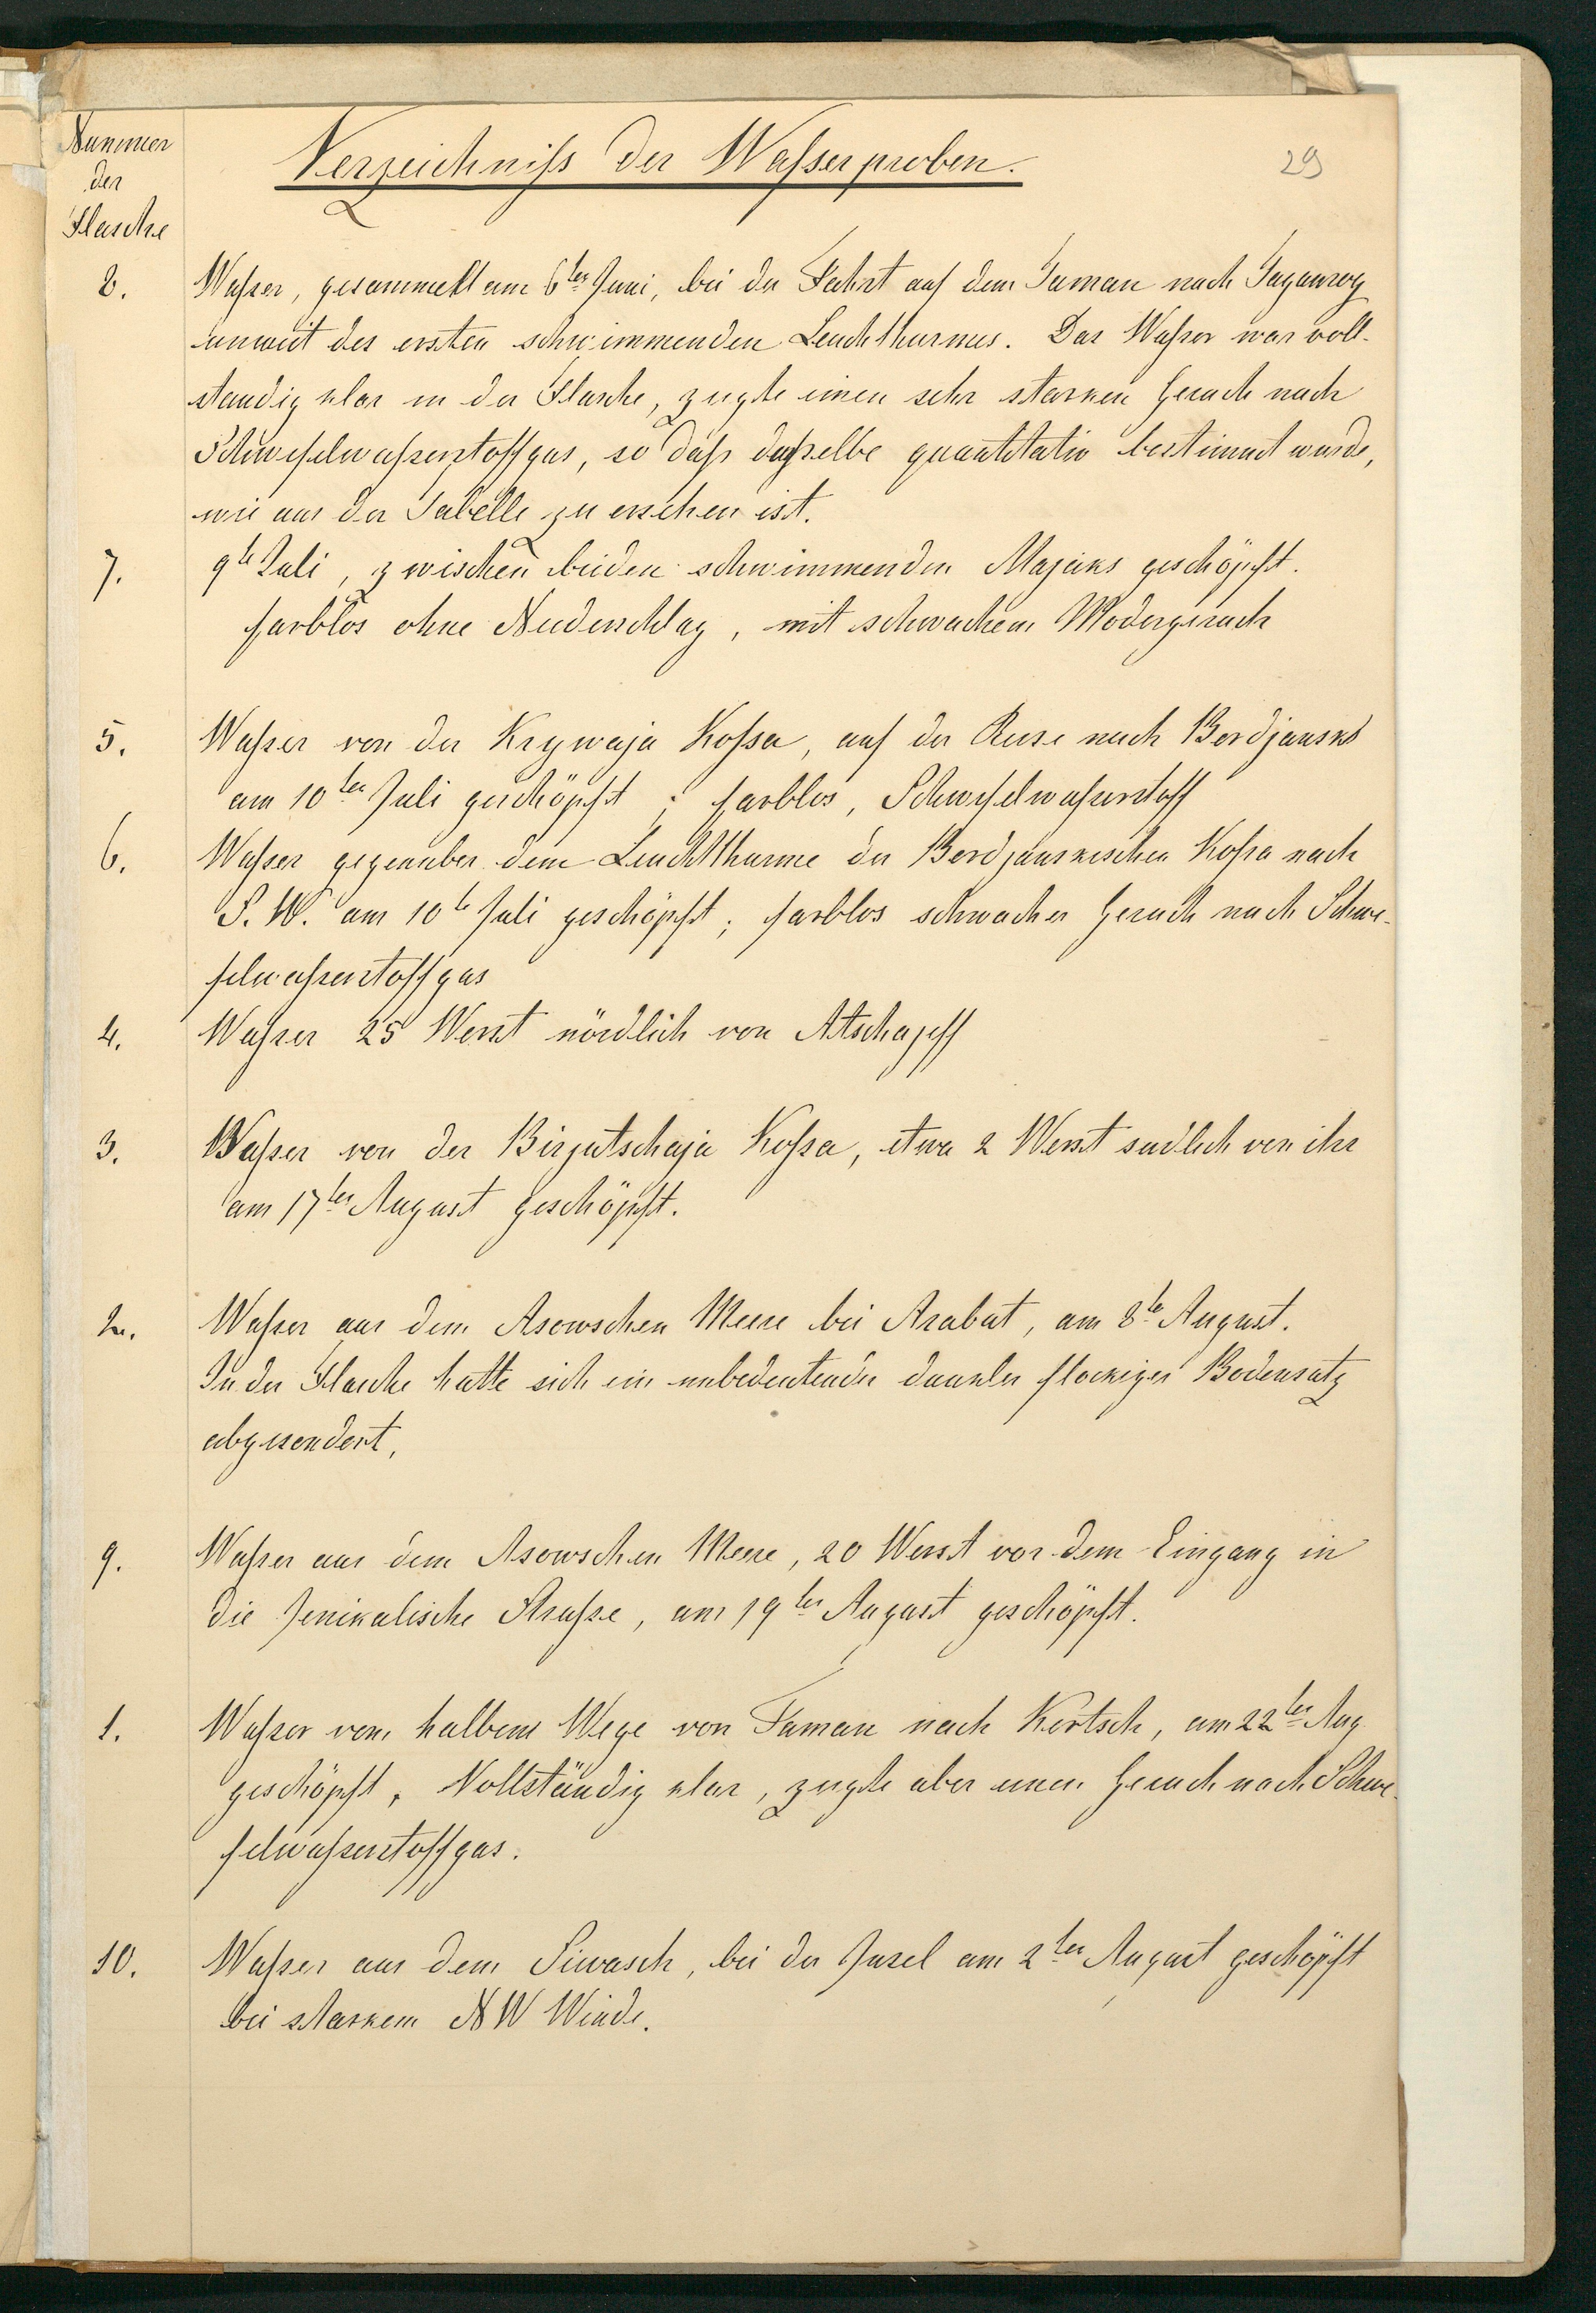 Nummer
der
Flasche
Verzeichniß der Waßerproben.
29
8. Waßer, gesammelt am 6ten Juni, bei der Fahrt auf dem Taman nach Taganrog
unweit des ersten schwimmenden Leuchtthurmes. Das Waßer war voll-
standig klar in der Flasche, zeigte einen sehr starken Geruch nach
Schwefelwaßerstoffgas, so daß daßelbe quantitativ bestimmt wurde,
wie aus der Tabelle zu ersehen ist.
7. 9te Juli, zwischen beiden schwimmenden Majaks geschöpft.
farblos ohne Niederschlag, mit schwachem Modergeruch
5. Waßer von der Krywaja Koßa, auf der Reise nach Berdjansk
am 10ten Juli geschöpft; farblos, Schwefelwaßerstoff
6. Waßer gegenuber dem Leuchtthurme der Berdjanskischen Koßa nach
S. W. am 10te Juli geschöpft; farblos schwacher Geruch nach Schwe-
felwaßerstoffgas
4. Waßer 25 Werst nördlich von Atschajeff
3. Waßer von der Birjutschaja Koßa, etwa 2 Werst sudlich von ihr
am 17ten August geschöpft.
2. Waßer aus dem Asowschen Meere bei Arabat, am 8te August.
In der Flasche hatte sich ein unbedeutender dunkler flockiger Bodensatz
abgesondert.
9. Waßer aus dem Asowschen Meere, 20 Werst vor dem Eingang in
die Jenikalische Straße, am 19ten August geschöpft.
1. Waßer vom halbem Wege von Taman nach Kertsch, am 22ten Aug.
geschöpft. Vollständig klar, zeigte aber einen Geruch nach Schwe-
felwaßerstoffgas.
10. Waßer aus dem Siwasch, bei der Insel am 2ten August geschöpft
bei starkem NW Winde.